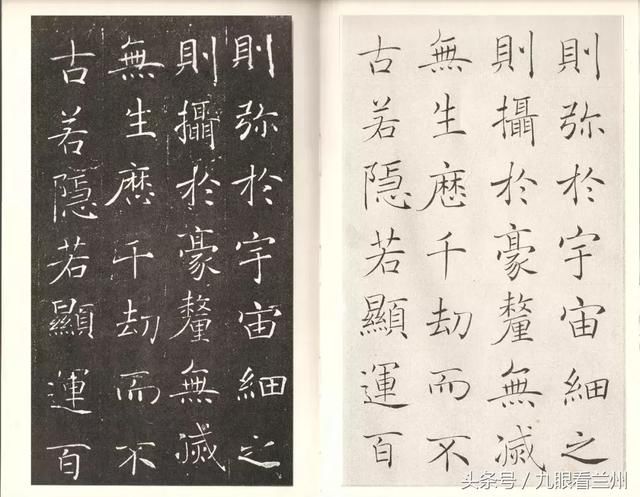 則弥於宇宙細之
則攝於豪釐無滅
無生歷千劫而不
古若隱若顯運百
則弥於宇宙細之
則攝於豪釐無滅
無生歷千劫而不
古若隱若顯運百
头条号 / 九眼看兰州